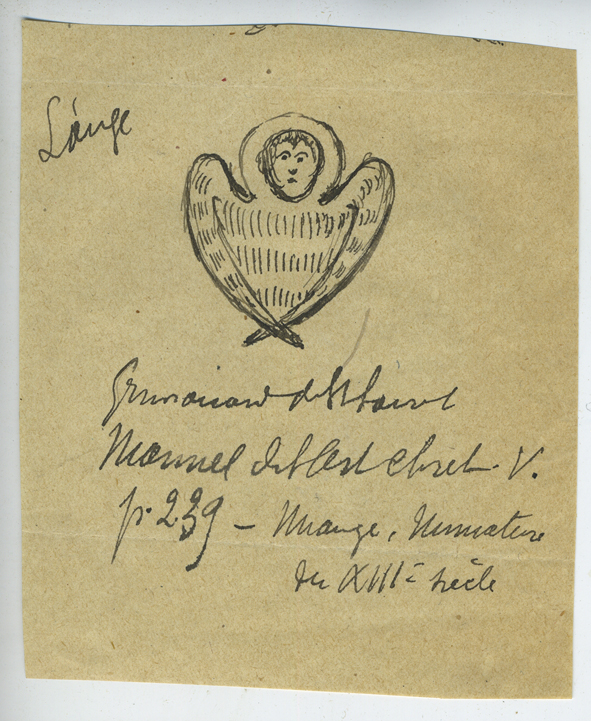 L'ange
Grimouard de St Laurent
Manuel de l'Art chrét. V.
p. 239 — Nuange, Miniature
du XIIIe siècle